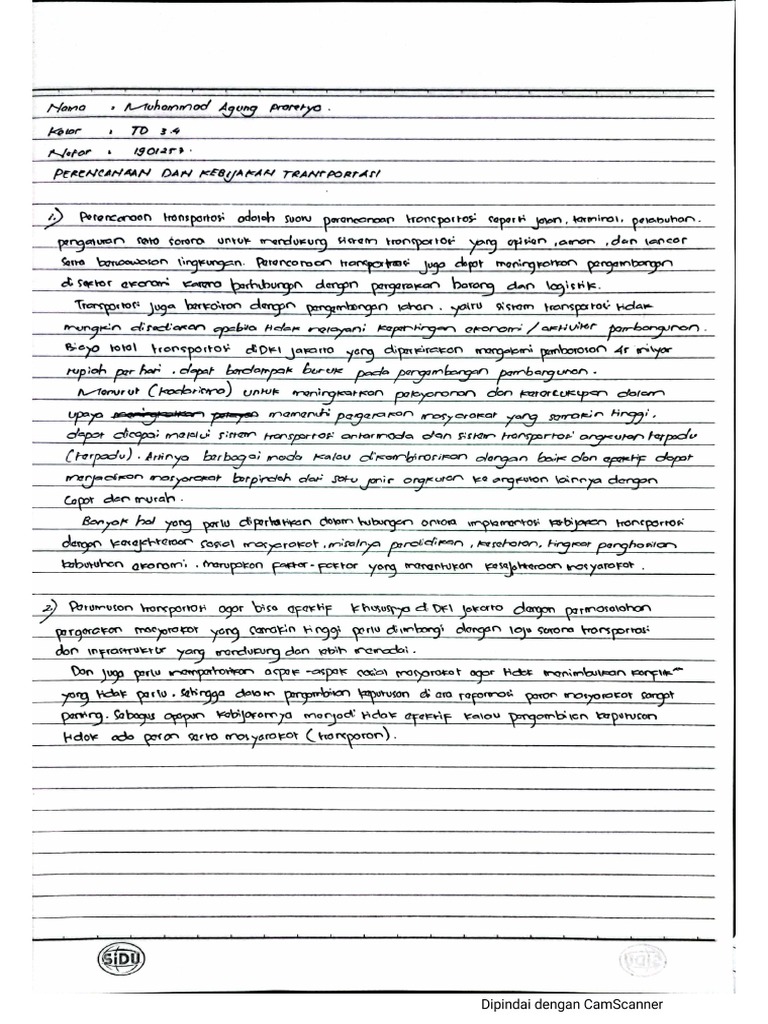 Nama : Muhammad Agung Prasetyo.
Kelas : TD 3.4
Notar : 1901257.
PERENCANAAN DAN KEBIJAKAN TRANSPORTASI
1.) Perencanaan transportasi adalah suatu perencanaan transportasi seperti jalan, terminal, pelabuhan.
pengaturan serta sarana untuk mendukung sistem transportasi yang efisien, aman, dan lancar
serta berwawasan lingkungan. Perencanaan transportasi juga dapat meningkatkan pengembangan
di sektor ekonomi karena berhubungan dengan pergerakan barang dan logistik.
Transportasi juga berkaitan dengan pengembangan lahan. yaitu sistem transportasi tidak
mungkin disediakan apabila tidak melayani kepentingan ekonomi / aktivitas pembangunan.
Biaya total transportasi di DKI Jakarta yang diperkirakan mengalami pemborosan milyar
rupiah per hari. dapat berdampak buruk pada pengembangan pembangunan.
Menurut (kadarisma) untuk meningkatkan pelayanan dan ketercukupan dalam
upaya memenuhi pergerakan masyarakat yang semakin tinggi.
dapat dicapai melalui sistem transportasi antarmoda dan sistem transportasi angkutan terpadu
(terpadu). Artinya berbagai moda kalau dikombinasikan dengan baik dan efektif dapat
menjadikan masyarakat berpindah dari satu jenis angkutan ke angkutan lainnya dengan
cepat dan murah.
Banyak hal yang perlu diperhatikan dalam hubungan antara implementasi kebijakan transportasi
dengan kesejahteraan sosial masyarakat, misalnya pendidikan, kesehatan, tingkat penghasilan
kebutuhan ekonomi. merupakan faktor-faktor yang menentukan kesejahteraan masyarakat.
2.) Perumusan transportasi agar bisa efektif khususnya di DKI Jakarta dengan permasalahan
pergerakan masyarakat yang semakin tinggi perlu diimbangi dengan laju sarana transportasi
dan infrastruktur yang mendukung dan lebih memadai.
Dan juga perlu memperhatikan aspek-aspek sosial masyarakat agar tidak menimbulkan konflik
yang tidak perlu. sehingga dalam pengambilan keputusan di era reformasi peran masyarakat sangat
penting. Sebagus apapun kebijakannya menjadi tidak efektif kalau pengambilan keputusan
tidak ada peran serta masyarakat (transparan).
SIDU
Dipindai dengan CamScanner